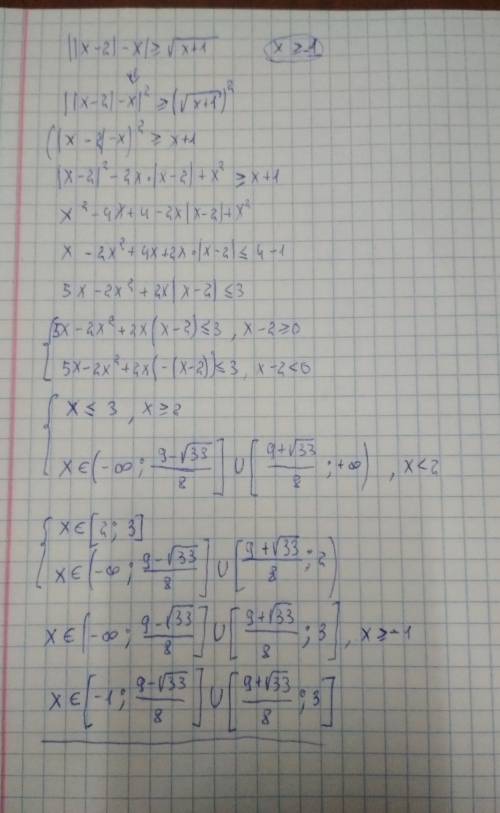 ||x-2|-x| ≥ √(x+1)   x ≥ 1
↓
||x-2|-x|² ≥ (√(x+1))²
(|x-2|-x)² ≥ x+1
|x-2|² - 2x·|x-2| + x² ≥ x+1
x² - 4x + 4 - 2x|x-2| + x²
x - 2x² + 4x + 2x·|x-2| ≤ 4-1
5x - 2x² + 2x|x-2| ≤ 3
{ 5x - 2x² + 2x(x-2) ≤ 3, x-2 ≥ 0
5x - 2x² + 2x(-(x-2)) ≤ 3, x-2 < 0
{ x ≤ 3, x ≥ 2
x ∈ (-∞; (9-√33)/8] ∪ [(9+√33)/8; +∞), x < 2
{ x ∈ [2; 3]
x ∈ (-∞; (9-√33)/8] ∪ [(9+√33)/8; 2)
x ∈ (-∞; (9-√33)/8] ∪ [(9+√33)/8; 3], x ≥ -1
x ∈ [-1; (9-√33)/8] ∪ [(9+√33)/8; 3]